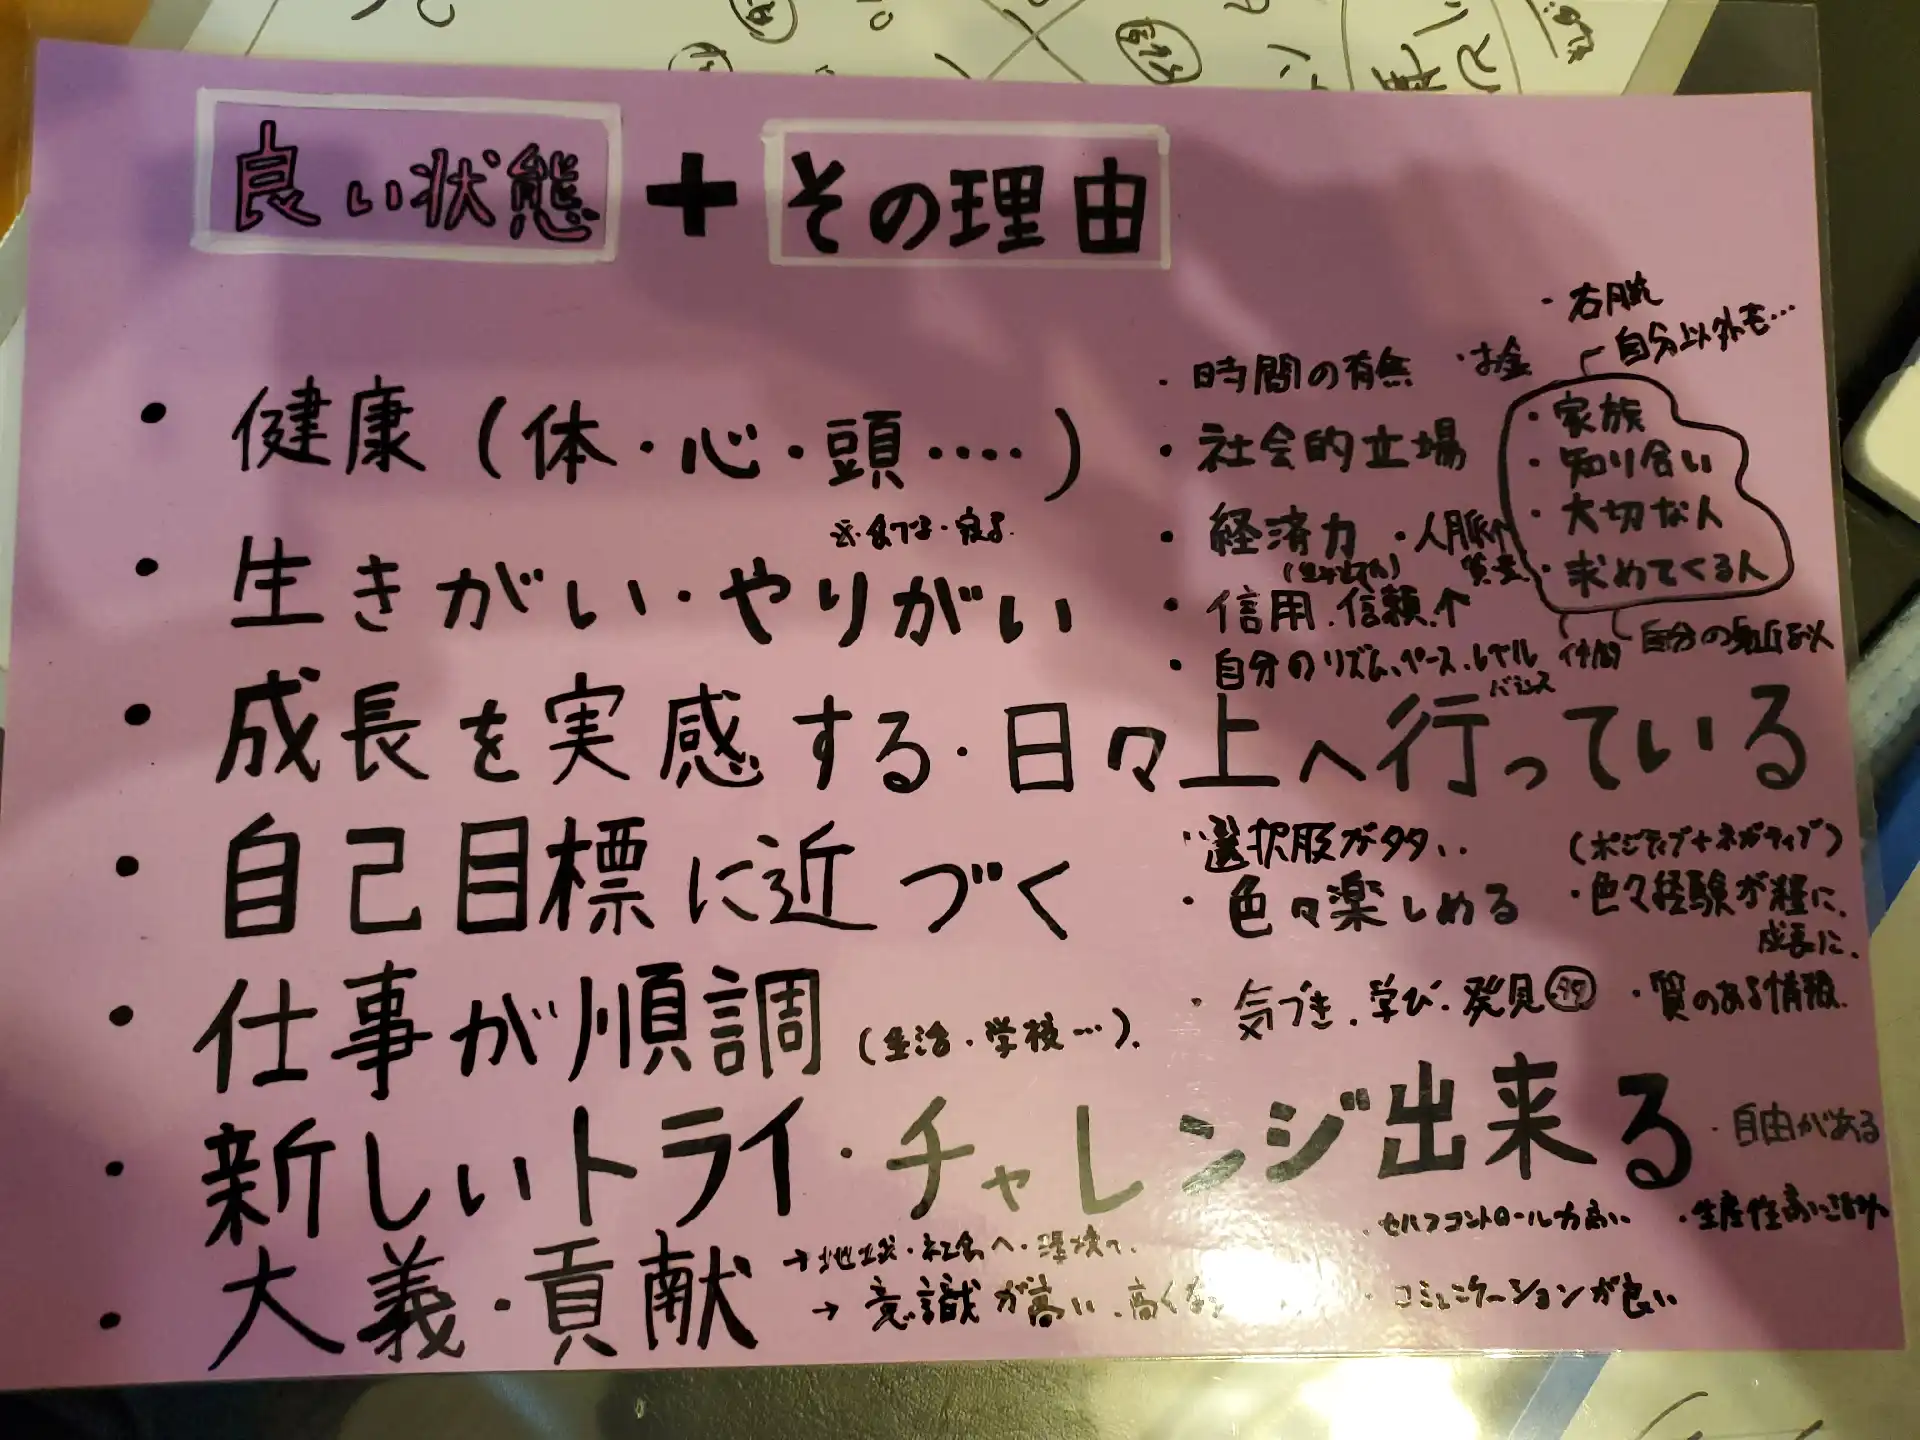 良い状態 + その理由
・右脳
自分以外も…
・時間の有無 ・お金
・健康(体・心・頭‥‥)
・社会的立場
・家族
・知り合い
・大切な人
・求めてくる人
※食べる・寝る
・経済力 ・人脈
・生きがい・やりがい
・信用・信頼↑
自分の身近な人
・自分のリズム、ペース、レベル
バランス
・成長を実感する・日々上へ行っている
・選択肢が多い
(ポジティブ+ネガティブ)
・自己目標に近づく
・色々楽しめる
・色々経験が糧に、
成長に、
・仕事が順調(生活・学校…)
・気づき、学び、発見 多々
・質のある情報
・新しいトライ・チャレンジ出来る
・自由がある
・セルフコントロール力高い
・生産性高い
・大義・貢献
→地域・社会へ・環境へ
→意識が高い、高くな
・コミュニケーションが良い